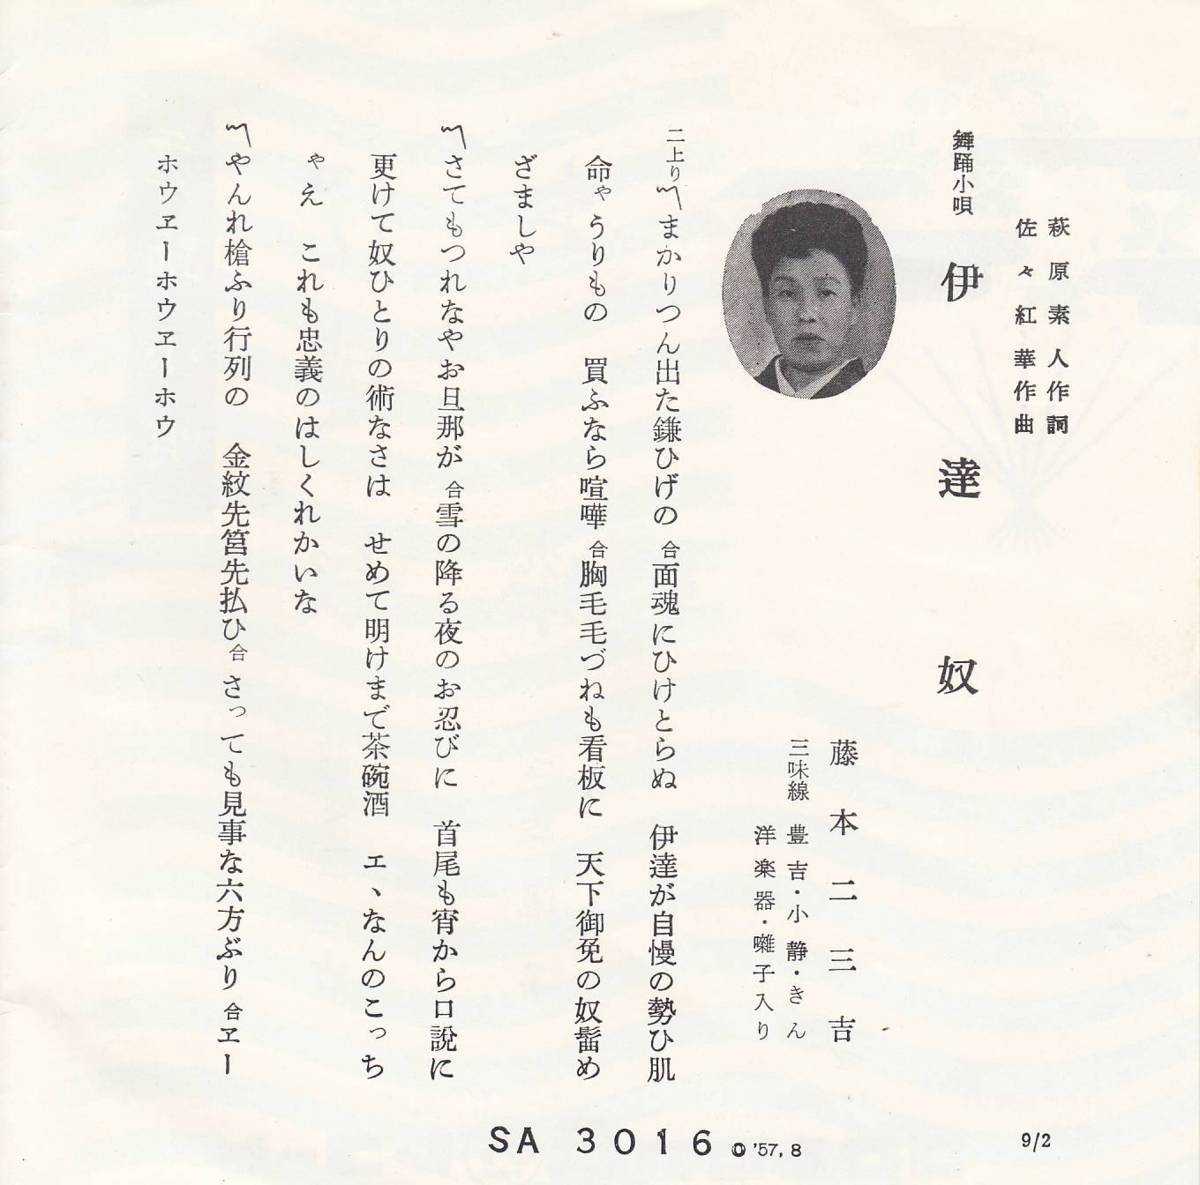 萩原素人作詞
佐々紅華作曲
舞踊小唄
伊達奴
藤本二三吉
三味線 豊吉・小静・きん
洋楽器・囃子入り
二上り〽まかりつん出た鎌ひげの 合面魂にひけとらぬ 伊達が自慢の勢ひ肌
命ゃうりもの 買ふなら喧嘩 合胸毛毛づねも看板に 天下御免の奴髷め
ざましや
〽さてもつれなやお旦那が 合雪の降る夜のお忍びに 首尾も宵から口説に
更けて奴ひとりの術なさは せめて明けまで茶碗酒 エヽなんのこっち
ゃえ これも忠義のはしくれかいな
〽やんれ槍ふり行列の 金紋先筥先払ひ合 さっても見事な六方ぶり 合ヱー
ホウヱーホウヱーホウ
SA 3016 '57,8
9/2